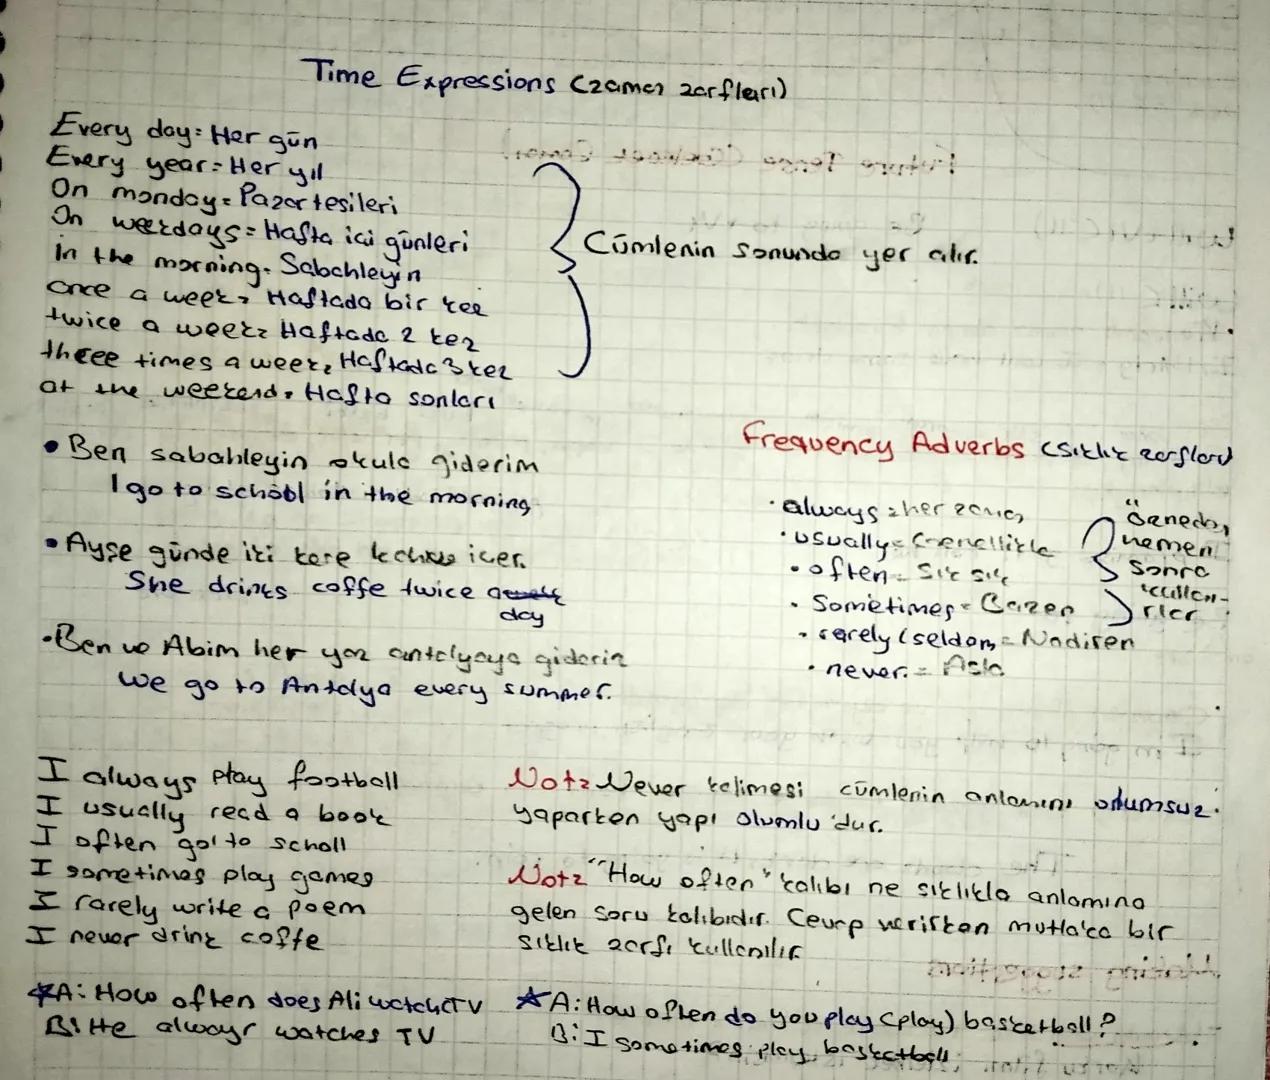 Time Expressions (zaman zarfları)
Every day = Her gün
Every year = Her yıl
On monday = Pazartesileri
On weekdays = Hafta içi günleri
in the morning = Sabahleyin
once a week = Haftada bir kez
twice a week = Haftada 2 kez
three times a week = Haftada 3 kez
at the weekend = Hafta sonları
Cümlenin sonunda yer alır.
• Ben sabahleyin okula giderim
I go to school in the morning
• Ayşe günde iki kere kahve içer.
She drinks coffe twice a
day
• Ben ve Abim her yaz antalyaya gideriz
We go to Antalya every summer.
Frequency Adverbs (sıklık zarfları)
• always = her zaman
• usually = Genellikle
• often = Sık sık
• Sometimes = Bazen
• rarely (seldom = Nadiren
• never = Asla
Özneden
hemen
sonra
kullanı-
lırlar
I always play football
I usually read a book
I often go to scholl
I sometimes play games
I rarely write a poem
I never drink coffe
Not = Never kelimesi cümlenin anlamını olumsuz
yaparken yapı olumlu'dur.
Not = "How often" kalıbı ne sıklıkla anlamına
gelen soru kalıbıdır. Cevap verirken mutlaka bir
sıklık zarfı kullanılır.
A: How often does Ali watch TV
B: He always watches TV
A: How often do you play (play) basketball?
B: I sometimes play basketball